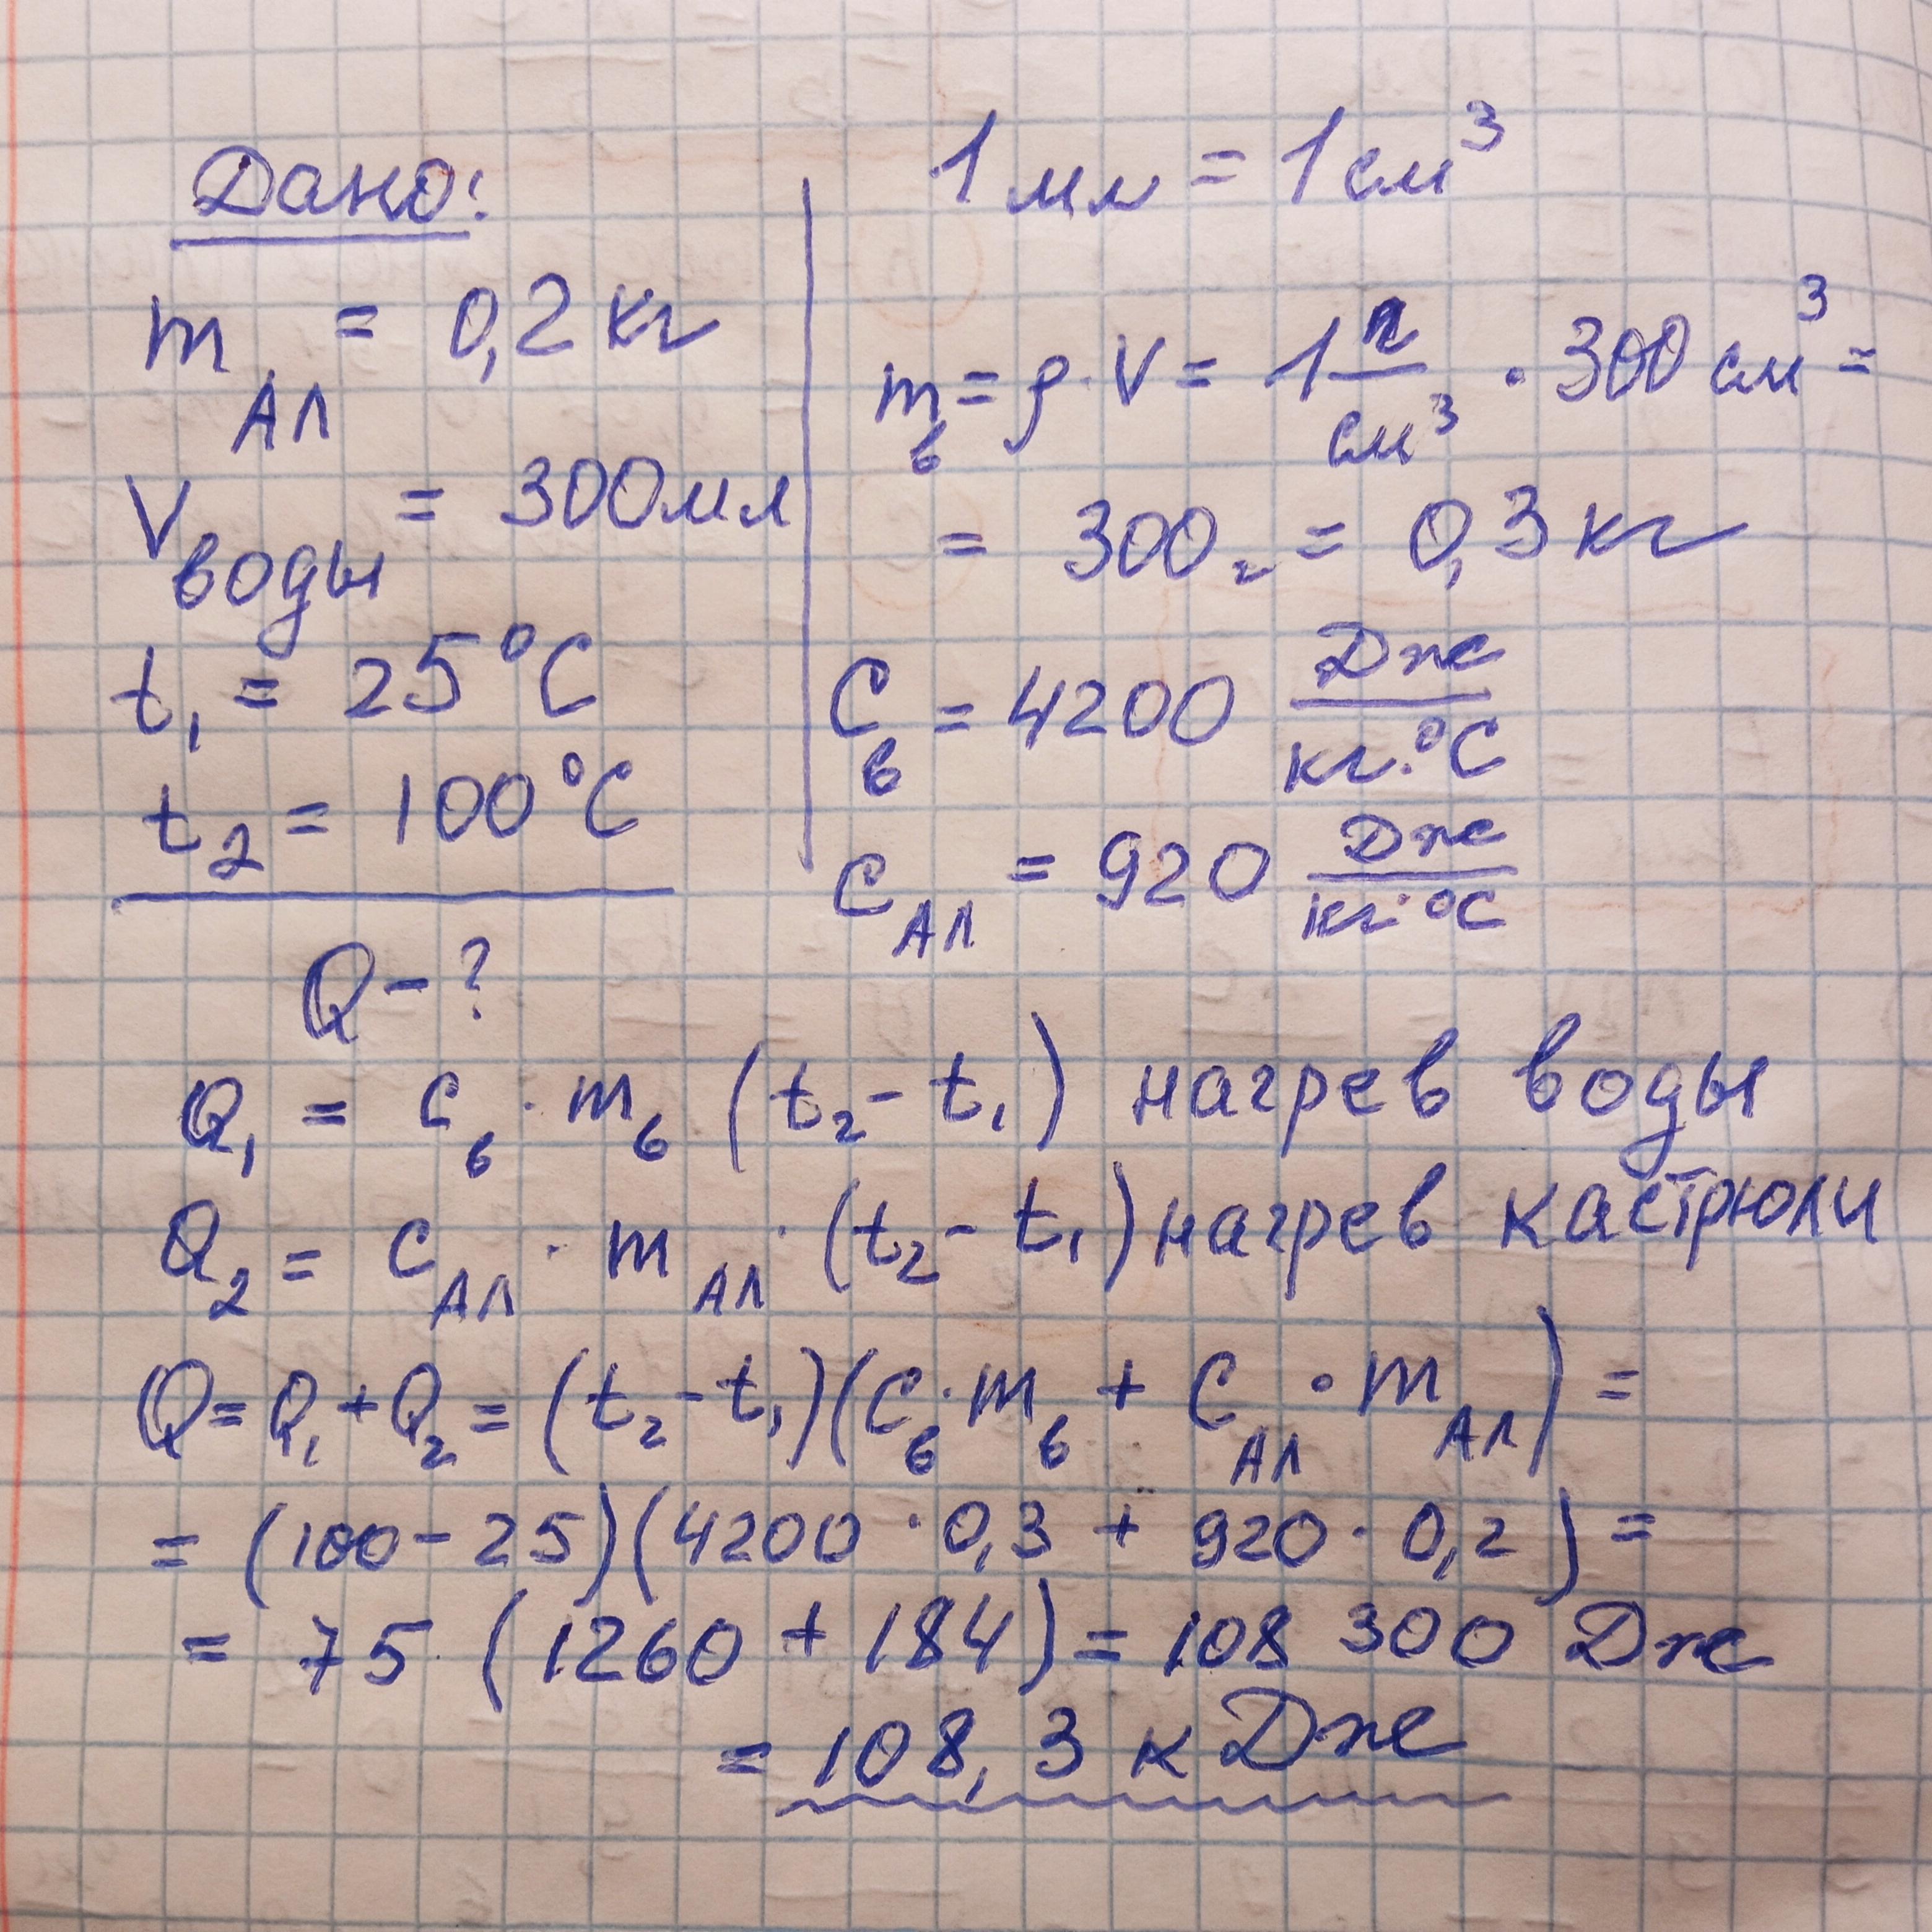 Дано:
m Ал = 0,2 кг
V воды = 300 мл
t₁ = 25°C
t₂ = 100°C
Q - ?
1 мл = 1 см³
m в = ρ · V = 1 г/см³ · 300 см³ =
= 300 г = 0,3 кг
C в = 4200 Дж/кг·°C
C Ал = 920 Дж/кг·°C
Q₁ = c в · m в (t₂ - t₁) нагрев воды
Q₂ = c Ал · m Ал · (t₂ - t₁) нагрев кастрюли
Q = Q₁ + Q₂ = (t₂ - t₁)(c в · m в + c Ал · m Ал) =
= (100 - 25)(4200 · 0,3 + 920 · 0,2) =
= 75 · (1260 + 184) = 108 300 Дж
= 108,3 кДж